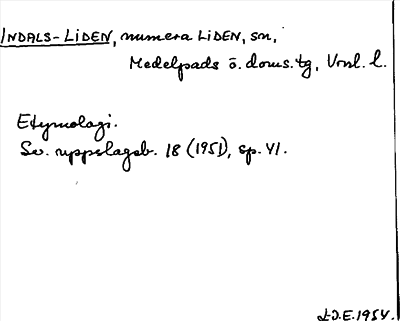 INDALS-LIDEN, numera LIDEN, sn,
Medelpads ö. doms.tg, Vnl. l.
Etymologi.
Sv. uppslagsb. 18 (1951), sp. 41.
J.E. 1954.